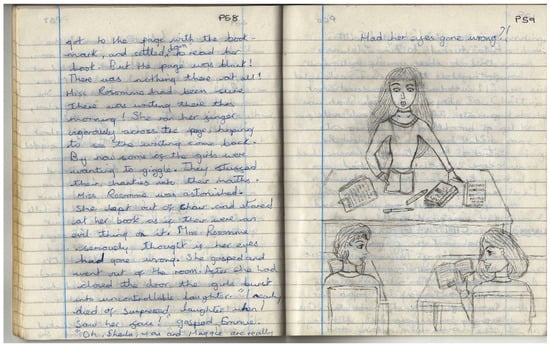 P58
got to the page with the book-
mark, and settled down to read her
book. But the page was blank!
There was nothing there at all!
Miss Rosamine had been sure
there was writing there this
morning! She ran her finger
vigorously across the page, hoping
to see the writing come back.
By now some of the girls were
wanting to giggle. They stuffed
their hankies into their mouths.
Miss Rosamine was astonished.
She leapt out of chair and stared
at her book as if there was an
evil thing on it. Miss Rosamine
seriously thought is her eyes
had gone wrong. She gasped and
went out of the room. After she had
closed the door the girls burst
into uncontrollable laughter. "I nearly
died of surpresed laughter when I
saw her face!" gasped Emmie.
"Oh, Sheila, you and Maggie are really
P59
Had her eyes gone wrong?!